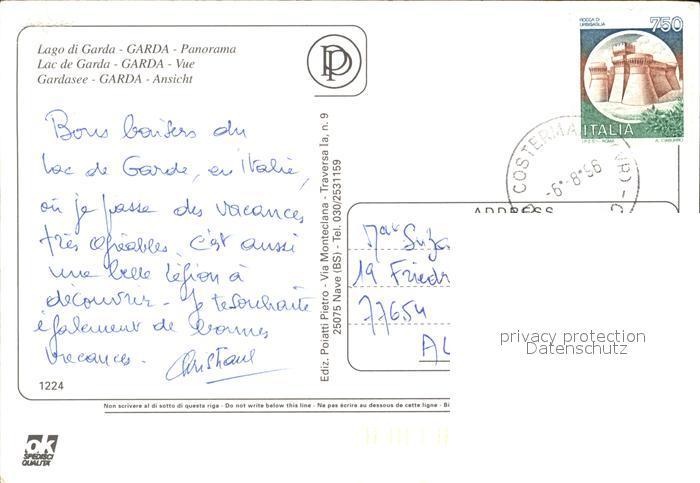 Lago di Garda - GARDA - Panorama
Lac de Garda - GARDA - Vue
Gardasee - GARDA - Ansicht
ROCCA DI URBISAGLIA
750
ITALIA
I.P.Z.S. - ROMA
COSTERMA (VR) - C
-6.-8.96
Bons baisers du
Lac de Garde, en Italie,
où je passe des vacances
très agréables. C'est aussi
une belle région à
découvrir - Je te souhaite
également de bonnes
vacances.
Christiane
1224
Ediz. Poiatti Pietro - Via Monteclana - Traversa Ia, n. 9
25075 Nave (BS) - Tel. 030/2531159
ADDRESS
19 Friedr
77654
privacy protection
Datenschutz
Non scrivere al di sotto di questa riga - Do not write below this line - Na pas écrire au dessous de cette ligne - Bi
ok
SPEDISCI
QUALITÀ